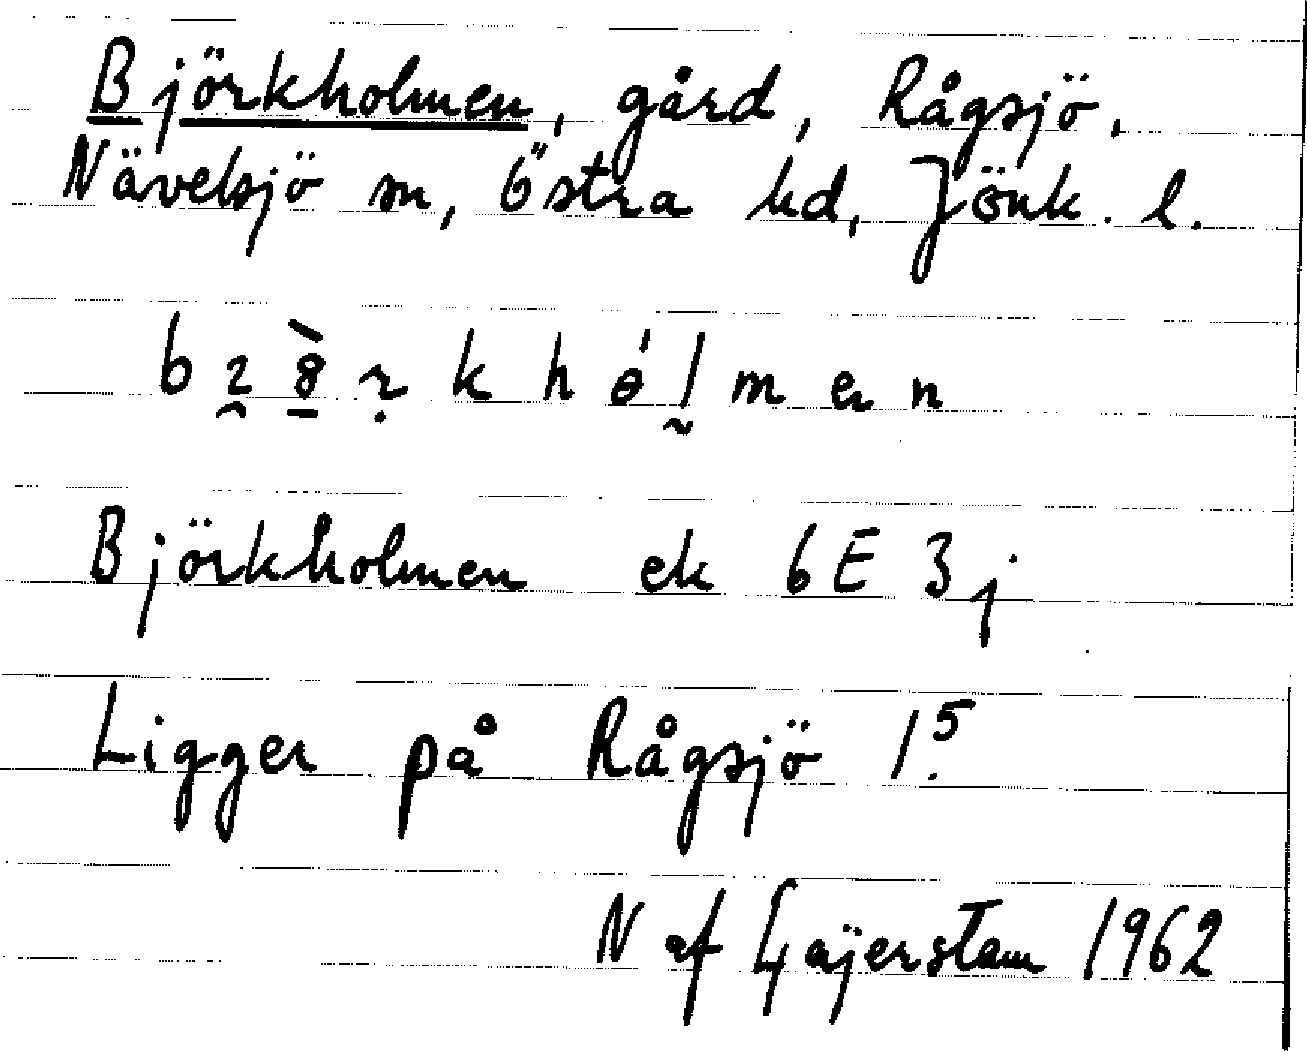 Björkholmen, gård, Rågsjö,
Nävelsjö sn, Östra hd, Jönk. l.
Björkholmen ek 6E 3j
Ligger på Rågsjö 1⁵.
N af Gäijerstam 1962